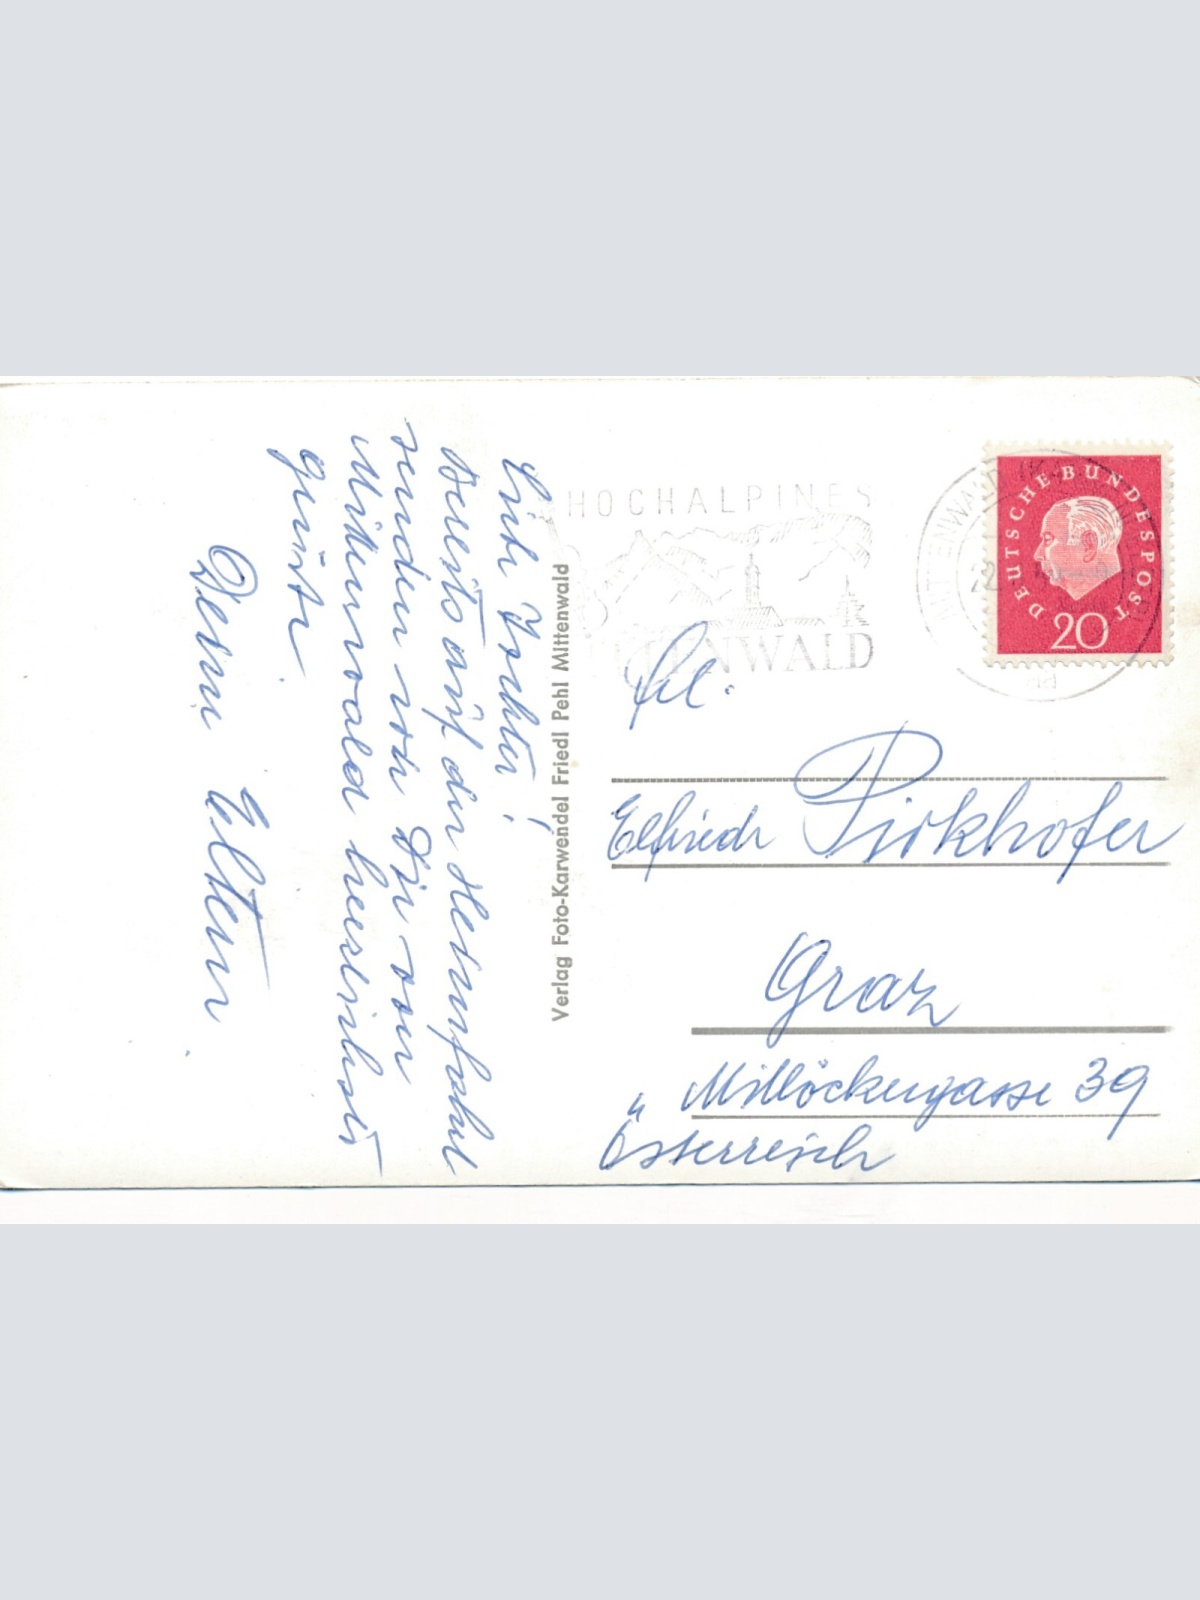 Liebe Tochter!
Bereits auf der Heimfahrt
senden wir Dir von
Mittenwald herzlichste
Grüße
Deine Eltern
Verlag Foto-Karwendel Friedl Pehl Mittenwald
HOCHALPINES
MITTENWALD
MITTENWALD
DEUTSCHE BUNDESPOST
20
Frl.
Elfriede Pirkhofer
Graz
Millöckergasse 39
Österreich